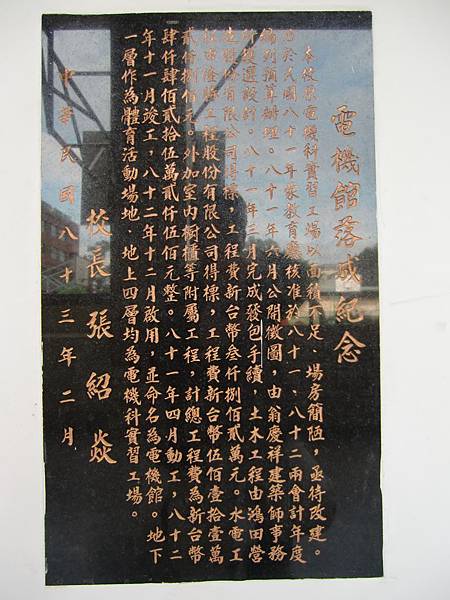 電機館落成紀念
本校原電機科實習工場以面積不足、場房簡陋,亟待改建。
於民國八十一年蒙教育廳核准於八十一、八十二兩會計年度
編列預算辦理。八十一年六月公開徵圖,由翁慶祥建築師事務
所獲選設計。八十一年三月完成發包手續,土木工程由鴻田營
造股份有限公司得標,工程費新台幣叁仟捌佰貳萬元。水電工
工程股份有限公司得標,工程費新台幣伍佰壹拾壹萬
貳仟捌佰元。外加室內櫥櫃等附屬工程,計總工程費為新台幣
肆仟肆佰貳拾伍萬貳仟伍佰元整。八十一年四月動工,八十二
年十一月竣工,八十二年十二月啟用,並命名為電機館。地下
一層作為體育活動場地,地上四層均為電機科實習工場。
校長 張紹焱
中華民國八十三年二月